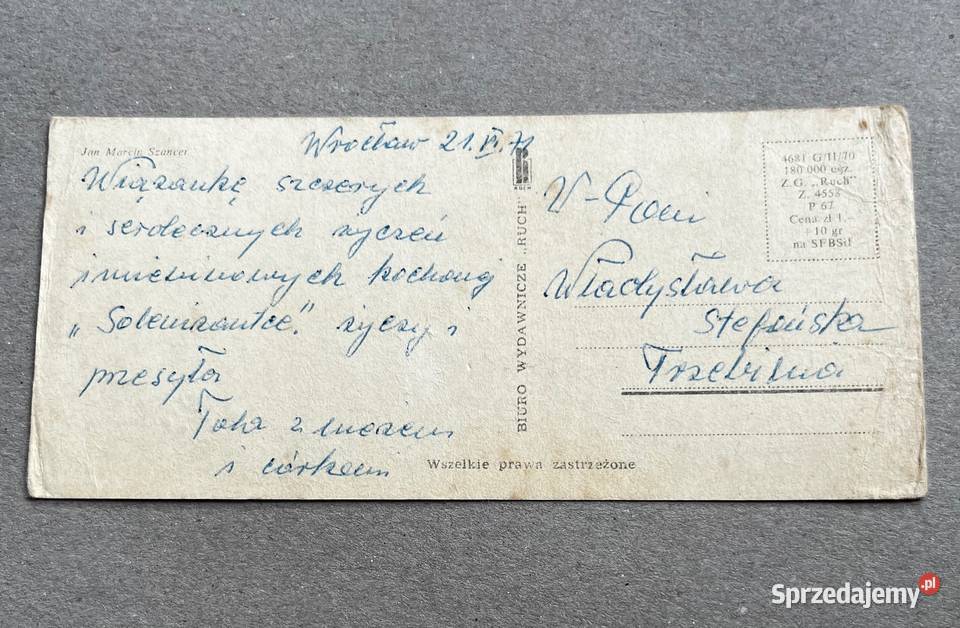 Jan Marcin Szancer
Wrocław 21.VI.71
Wiązankę szczerych
i serdecznych życzeń
imieninowych kochanej
"Solenizantce." życzy i
przesyła
z mężem
i córkami
BIURO WYDAWNICZE „RUCH"
RUCH
4681 G/II/70
180 000 egz.
Z.G. „Ruch"
Z. 4558
P 67
Cena zł 1.-
+10 gr
na SFBSiI
W-Pani
Władysława
Stefańska
Trzebinia
Wszelkie prawa zastrzeżone
Sprzedajemy.pl